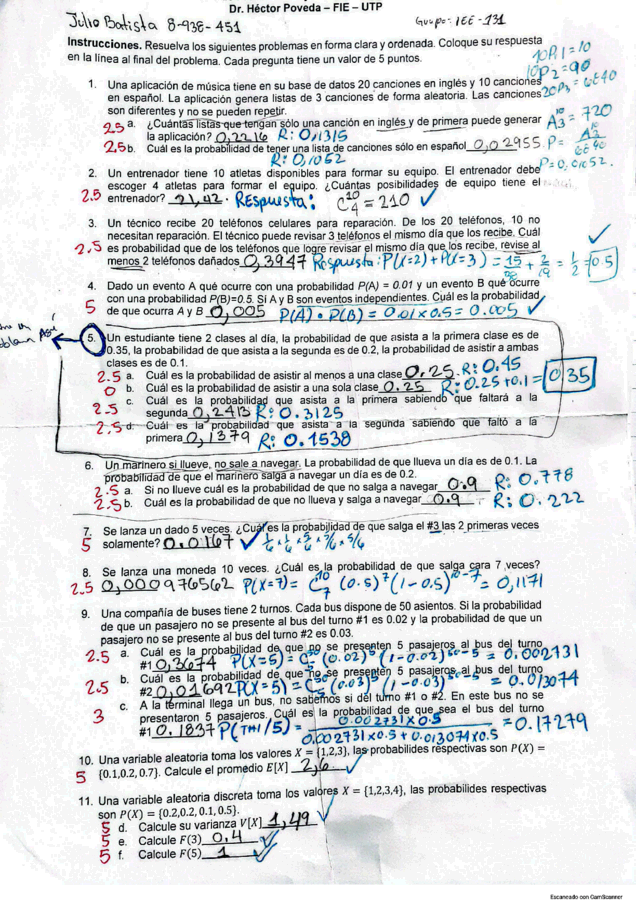 Dr. Héctor Poveda – FIE – UTP
Julio Batista 8-938-451
Grupo: 1EE-131
Instrucciones. Resuelva los siguientes problemas en forma clara y ordenada. Coloque su respuesta
en la línea al final del problema. Cada pregunta tiene un valor de 5 puntos.
10P1 = 10
10P2 = 90
20P3 = 6840
1. Una aplicación de música tiene en su base de datos 20 canciones en inglés y 10 canciones
en español. La aplicación genera listas de 3 canciones de forma aleatoria. Las canciones
son diferentes y no se pueden repetir.
2.5 a. ¿Cuántas listas que tengan sólo una canción en inglés y de primera puede generar
la aplicación? 0,2216 R: 0,1315
A3 10 = 720
2.5 b. Cuál es la probabilidad de tener una lista de canciones sólo en español 0,02955
R: 0,1052
P = A3 10 / 6840
P = 0,01052.
2. Un entrenador tiene 10 atletas disponibles para formar su equipo. El entrenador debe
escoger 4 atletas para formar el equipo. ¿Cuántas posibilidades de equipo tiene el
2.5 entrenador? 21,42. Respuesta: C4 10 = 210 ✓
3. Un técnico recibe 20 teléfonos celulares para reparación. De los 20 teléfonos, 10 no
necesitan reparación. El técnico puede revisar 3 teléfonos el mismo día que los recibe. Cuál
2.5 es probabilidad de que los teléfonos que logre revisar el mismo día que los recibe, revise al
menos 2 teléfonos dañados 0,3947 Respuesta: P(X=2)+P(X=3) = 15/38 + 2/19 = 1/2 = 0.5
4. Dado un evento A qué ocurre con una probabilidad P(A) = 0.01 y un evento B qué ocurre
con una probabilidad P(B)=0.5. Si A y B son eventos independientes. Cuál es la probabilidad
5 de que ocurra A y B 0,005 P(A) · P(B) = 0.01 x 0.5 = 0.005 ✓
5. Un estudiante tiene 2 clases al día, la probabilidad de que asista a la primera clase es de
0.35, la probabilidad de que asista a la segunda es de 0.2, la probabilidad de asistir a ambas
clases es de 0.1.
2.5 a. Cuál es la probabilidad de asistir al menos a una clase 0.25. R: 0.45
0 b. Cuál es la probabilidad de asistir a una sola clase 0.25 R: 0.25 + 0.1 = 0.35
2.5 c. Cuál es la probabilidad que asista a la primera sabiendo que faltará a la
segunda 0,2413 R: 0.3125
2.5 d. Cuál es la probabilidad que asista a la segunda sabiendo que faltó a la
primera 0,1379 R: 0.1538
6. Un marinero si llueve, no sale a navegar. La probabilidad de que llueva un día es de 0.1. La
probabilidad de que el marinero salga a navegar un día es de 0.2.
2.5 a. Si no llueve cuál es la probabilidad de que no salga a navegar 0.9 R: 0.778
2.5 b. Cuál es la probabilidad de que no llueva y salga a navegar 0.9 R: 0.222
7. Se lanza un dado 5 veces. ¿Cuál es la probabilidad de que salga el #3 las 2 primeras veces
5 solamente? 0.0167 ✓ 1/6 x 1/6 x 5/6 x 5/6 x 5/6
8. Se lanza una moneda 10 veces. ¿Cuál es la probabilidad de que salga cara 7 veces?
2.5 0,000976562 P(X=7) = C7 10 (0.5)7 (1-0.5)10-7 = 0,1171
9. Una compañía de buses tiene 2 turnos. Cada bus dispone de 50 asientos. Si la probabilidad
de que un pasajero no se presente al bus del turno #1 es 0.02 y la probabilidad de que un
pasajero no se presente al bus del turno #2 es 0.03.
2.5 a. Cuál es la probabilidad de que no se presenten 5 pasajeros al bus del turno
#1 0,3674 P(X=5) = C5 50 (0.02)5 (1-0.02)50-5 = 0.002731
2.5 b. Cuál es la probabilidad de que no se presentén 5 pasajeros al bus del turno
#2 0,01692 P(X=5) = C5 50 (0.03)5 (1-0.03)50-5 = 0.013074
c. A la terminal llega un bus, no sabemos si del turno #1 o #2. En este bus no se
3 presentaron 5 pasajeros. Cuál es la probabilidad de que sea el bus del turno
#1 0.1837 P(TH1/5) = 0.002731 x 0.5 / 0.002731 x 0.5 + 0.013074 x 0.5 = 0.17279
10. Una variable aleatoria toma los valores X = {1,2,3}, las probabilides respectivas son P(X) =
5 {0.1,0.2, 0.7}. Calcule el promedio E[X] 2,6 ✓
11. Una variable aleatoria discreta toma los valores X = {1,2,3,4}, las probabilides respectivas
son P(X) = {0.2,0.2, 0.1, 0.5}.
5 d. Calcule su varianza V[X] 1,49 ✓
5 e. Calcule F(3) 0.4 ✓
5 f. Calcule F(5) 1 ✓
Escaneado con CamScanner